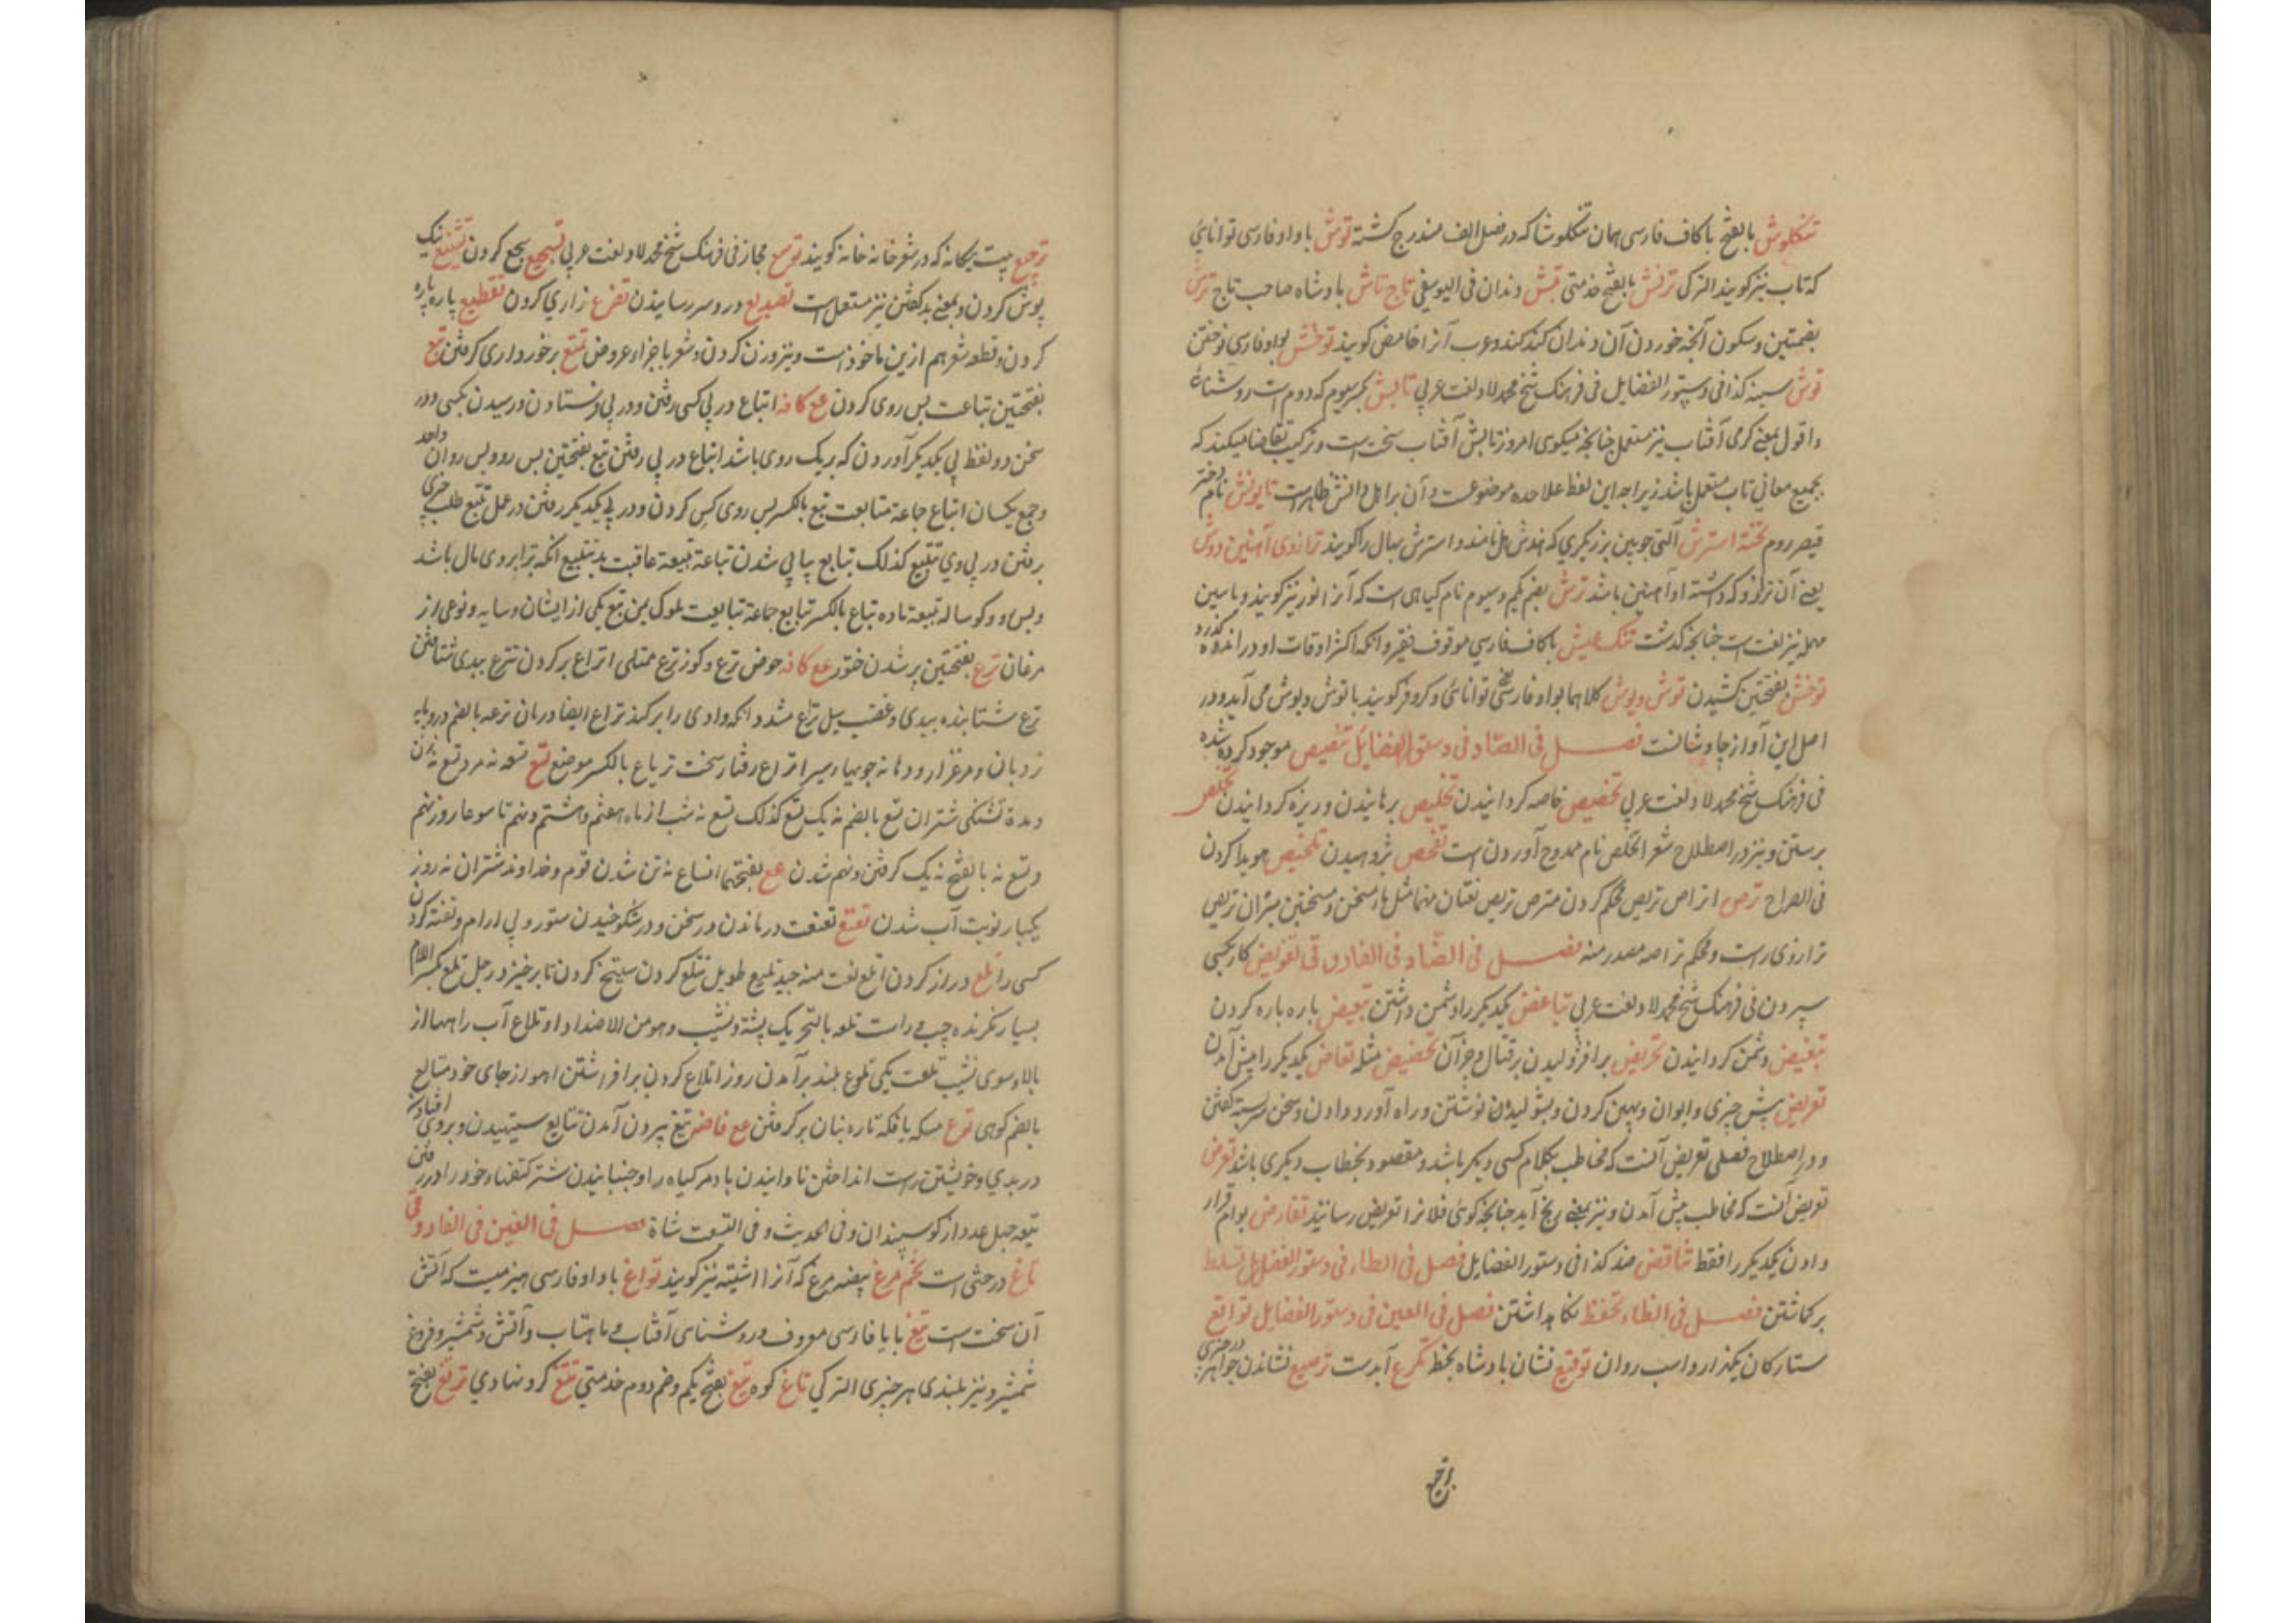 تنکلوش بالفتح باکاف فارسی همان تنکلوشا که در فصل الف مندرج کشته توش باواو فارسی توانایئ
که تاب نیز کویند الترکی ترنش بالفتح خدمتی تیش دندان فی الیوسفی تاج تاش بادشاه صاحب تاج ترش
بضمتین وسکون آنجه خوردن آن دندان کند کند وعرب آنرا حامض کویند توختش بواو فارسی
توش سینه کذا فی دستور الفضایل فی فرهنک شیخ محمد لاد لغت عربی تابش بکسر سیوم که دوم است روشنائ
واقول بمعنی کرمی آفتاب نیز مستعمل جنانجه میکوی امروز تابش آفتاب سخت است وترکیب تقاضا میکند که
بجمیع معانی تاب مستعمل باشد زیراجه این لفظ علاحده موضوع نیست وآن بر اهل دانش ظاهر است تایونش نام دختر
قیصر روم تخته استرش آلتی جوبین برزیکری که هندش هل نامند واسترش بهال را کویند ترازوی آهنین دوش
یعنی آن ترازو که دسته او آهنین باشد ترش بضم یکم وسیوم نام کیاهی است که آنرا نیز کویند وباسین
مهمله نیز لغت است جنانجه کذشت تنک عیش باکاف فارسی موقوف فقیر وانکه اکثر اوقات او در اندوه کذرد
توخش بفتحتین کشیدن توش وپوش کلاهما بواو فارسی توانائی وکر وفر کویند باتوش وپوش می آید ودر
اصل این آواز جاوشانست فصل فی الصاد فی دستور الفضایل تنصیص موجود کرده شده
فی فرهنک شیخ محمد لاد لغت عربی تخصیص خاصه کردانیدن تخلیص برهانیدن وریزه کردانیدن تخلص
برستن ونیز در اصطلاح شعر التخلص نام ممدوح آوردن است تفحص پژوهیدن تلخیص هویدا کردن
فی الصراح ترص اتراص تریص محکم کردن مترص تریص لغتان منهما مثل ماء مسخن وسخین میزان تریص
ترازوی راست ومحکم تراصه مصدر منه فصل فی الضاد فی الفاروقی تفویض کار بکسی
سپردن فی فرهنک شیخ محمد لاد لغت عربی تباغض یکدیکر را دشمن داشتن تبعیض باره باره کردن
تبغیض دشمن کردانیدن تحریض برافژولیدن بر قتال وجز آن تحضیض مثله تعارض یکدیکر را پیش آمدن
تعریض پیش چیزی وایوان وپهن کردن وبشولیدن نوشتن وراه آورد دادن وسخن سربسته کفتن
ودر اصطلاح فصلی تعریض آنست که مخاطب بکلام کسی دیکر باشد ومقصود بخطاب دیکری باشد تعرض
تعریض آنست که مخاطب پیش آمدن ونیز بمعنی رنج آید جنانجه کوئی فلانرا تعریض رسانید تقارض بوام قرار
دادن یکدیکر را فقط تناقض ضد کذا فی دستور الفضایل فصل فی الطاء فی دستور الفضایل تسلط
برکماشتن فصل فی الظاء تحفظ نکاهداشتن فصل فی العین فی دستور الفضایل توابع
ستارکان یکذار واسب روان توقیع نشان بادشاه بخط تکرع آبدست ترصیع نشاندن جواهر در چیزی
ترجیع
ترجیع بیت بیکانه که در شعر خانه خانه کویند توسع مجاز فی فرهنک شیخ محمد لاد لغت عربی تسجیع سجع کردن تشنیع نیک
پوش کردن وبمعنی بد کفتن نیز مستعمل است تصدیع درد سر رسانیدن تضرع زاری کردن تقطیع پاره پاره
کردن وقطعه شعر هم ازین ماخوذ است ونیز وزن کردن شعر باجزاء عروض تمتع برخورداری کرفتن تبع
بفتحتین تباعت پس روی کردن مع کافه اتباع در پی کسی رفتن ودر پی فرستادن ودر رسیدن بکسی ودر
سخن دو لفظ پی یکدیکر آوردن که بریک روی باشد اتباع در پی رفتن تبع بفتحتین پس رو وپس روان واحد
وجمع یکسان اتباع جماعة متابعت تبع بالکسر پس روی کس کردن ودر پی یکدیکر رفتن در عمل تتبع طلب چیزی
برفتن در پی وی تتبیع کذلک تتابع پیاپی شدن تباعة تبیعة عاقبت بد تبیع آنکه ترا بر وی مال باشد
وپس رو وکوساله تبیعة ماده تباع بالکسر تبایع جماعة تبابعت ملوک یمن تبع یکی از ایشان وسایه ونوعی از
مرغان ترع بفتحتین پر شدن خنور مع کافه حوض ترع وکوز ترع ممتلی اتراع پر کردن تترع ببدی شتافتن
ترع شتابنده ببدی وغضب سیل تراع شد وانکه وادی را پر کند تراع ایضا دربان ترعه بالضم در وپایه
نردبان ومرغزار ودهانه جویها وسیر اترع رفتار سخت تریاع بالکسر موضع تسع تسعه نه مرد تسع نه زن
ومدة تشنکی شتران تسع بالضم نه یک تسیع کذلک تسع نه شب از ماه هفتم وهشتم ونهم تاسوعا روز نهم
وتسع نه بالفتح نه یک کرفتن ونهم شدن مع بفتحهما اتساع نه تن شدن قوم وخداوند شتران نه روز
یکبار نوبت آب شدن تعتع تعتعت درماندن در سخن ودر شکوخیدن ستور وبی آرام وتفته کردن
کسی را تلع دراز کردن اتلع نعت منه جید تلیع طویل تتلع کردن سیتخ کردن تا برخیزد رجل تلع بکسر اللام
بسیار نکرنده چپ وراست تلعه بالتحریک پشته ونشیب وهو من الاضداد اوتلاع آب راهها از
بالا سوی نشیب تلعت یکی تلوع بلند برآمدن روز اتلاع کردن برافراشتن آهو از جای خود متالع
بالضم کوهی توع مسکه یا فکه تاره بنان برکرفتن مع فاضم تیغ بیرون آمدن تتایع ستیهیدن وبروی افتادن
در بدی وخویشتن راست انداختن ناوانیدن باد مر کیاه را وجنبانیدن شتر کتفها خود را در رفتن
تیعه چهل عدد از کوسپندان وفی الحدیث وفی التیعت شاة فصل فی الغین فی الفاروقی
تاغ درختی است تخم مرغ بیضه مرغ که آنرا اشتیته نیز کویند تواغ باواو فارسی هیزمیست که آتش
آن سخت است تیغ بایا فارسی معروف وروشنای آفتاب وماهتاب وآتش وشمشیر وفروغ
شمشیر ونیز بلندی هر چیزی الترکی تاغ کوه تتغ بفتح یکم وضم دوم خدمتی تتغ کرد نهادی ترتغ بفتح